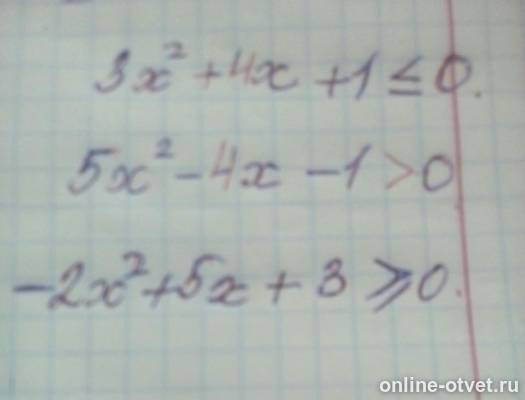 3x² + 4x + 1 ≤ 0.
5x² - 4x - 1 > 0
-2x² + 5x + 3 ⩾ 0.
online-otvet.ru